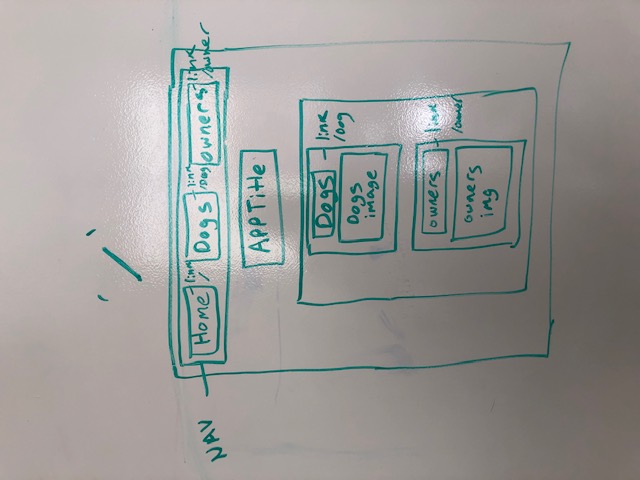 ' / '
NAV
Home
link
/
Dogs
link
/Dog
owners
link
/owner
APP Title
Dogs
link
/Dog
Dogs
image
owners
link
/owner
owners
img